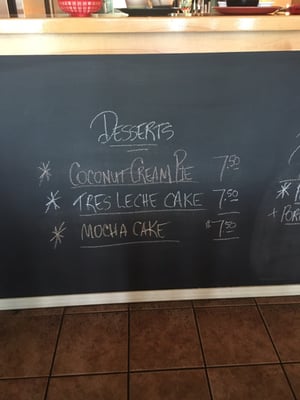 DESSERTS
* COCONUT CREAM PIE 7.50
* TRES LECHE CAKE 7.50
* MOCHA CAKE $7.50